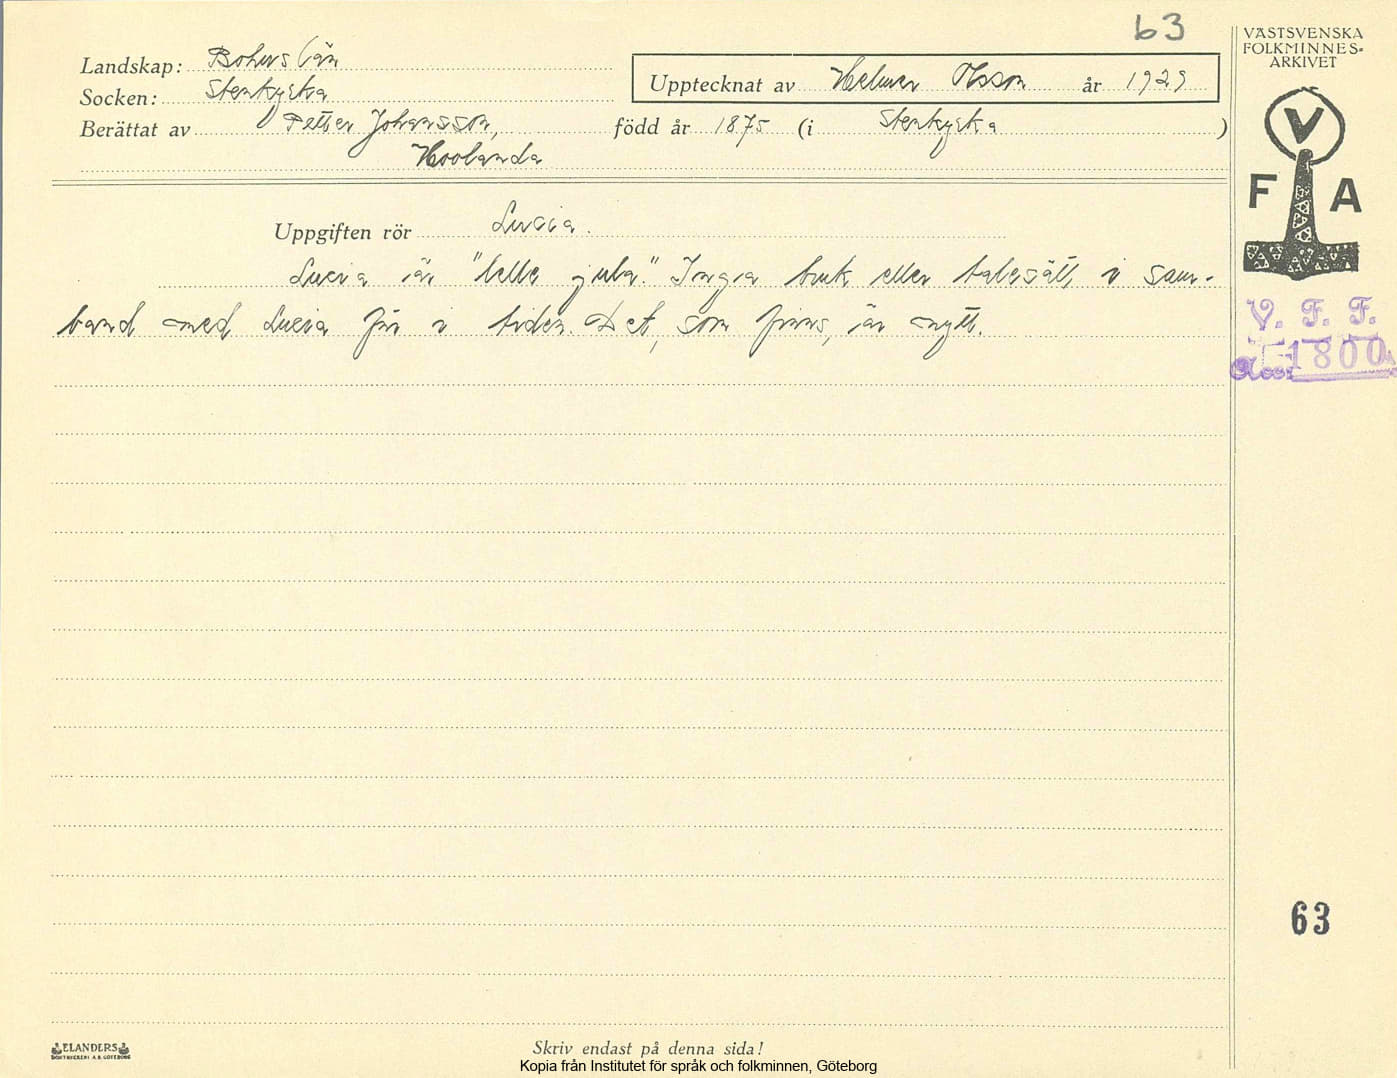 63
VÄSTSVENSKA
FOLKMINNES-
ARKIVET
Landskap: Bohuslän
Upptecknat av Helmer Olsson år 1929
Socken: Stenkyrka
Berättat av Petter Johansson, född år 1875 (i Stenkyrka )
Hoolanda
V
F A
Uppgiften rör Lucia.
Lucia är "lelle jula". Ingra bruk eller talesätt i sam-
band med Lucia för i tiden. Det, som finns, är nytt.
V. F. F.
Acc: 1800
63
ELANDERS
BOKTRYCKERI A.B. GÖTEBORG
Skriv endast på denna sida!
Kopia från Institutet för språk och folkminnen, Göteborg